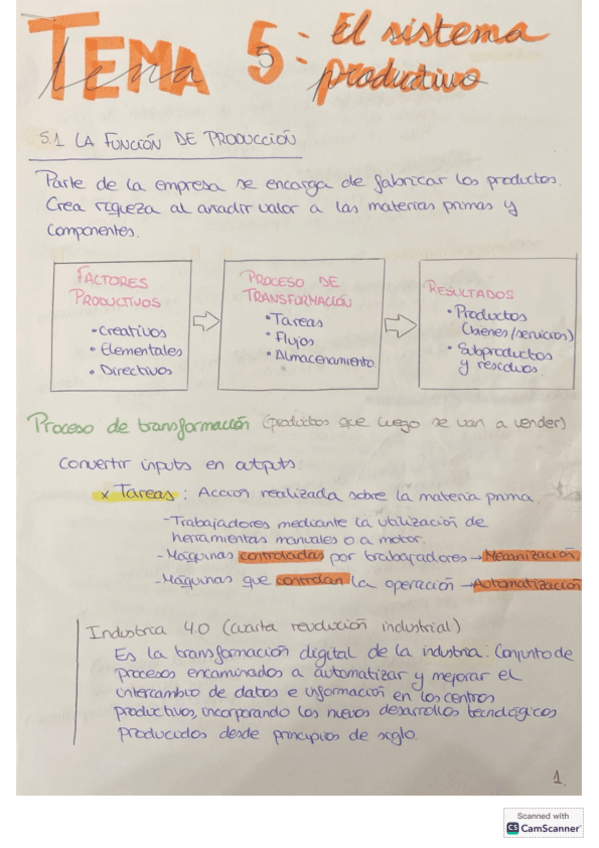 TEMA 5: El sistema
tema productivo
5.1 LA FUNCIÓN DE PRODUCCIÓN
Parte de la empresa se encarga de fabricar los productos.
Crea riqueza al añadir valor a las materias primas y
componentes.
FACTORES
PRODUCTIVOS
• Creativos
• Elementales
• Directivos
PROCESO DE
TRANSFORMACIÓN
• Tareas
• Flujos
• Almacenamiento
RESULTADOS
• Productos
(bienes/servicios)
• Subproductos
y residuos.
Proceso de transformación (productos que luego se van a vender)
Convertir inputs en outputs.
x Tareas: Acción realizada sobre la materia prima.
- Trabajadores mediante la utilización de
herramientas manuales o a motor.
- Máquinas controladas por trabajadores → Mecanización
- Máquinas que controlan la operación → Automatización
Industria 4.0 (cuarta revolución industrial)
Es la transformación digital de la industria: Conjunto de
procesos encaminados a automatizar y mejorar el
intercambio de datos e información en los centros
productivos, incorporando los nuevos desarrollos tecnológicos
producidos desde principios de siglo.
1.
Scanned with
CS CamScanner